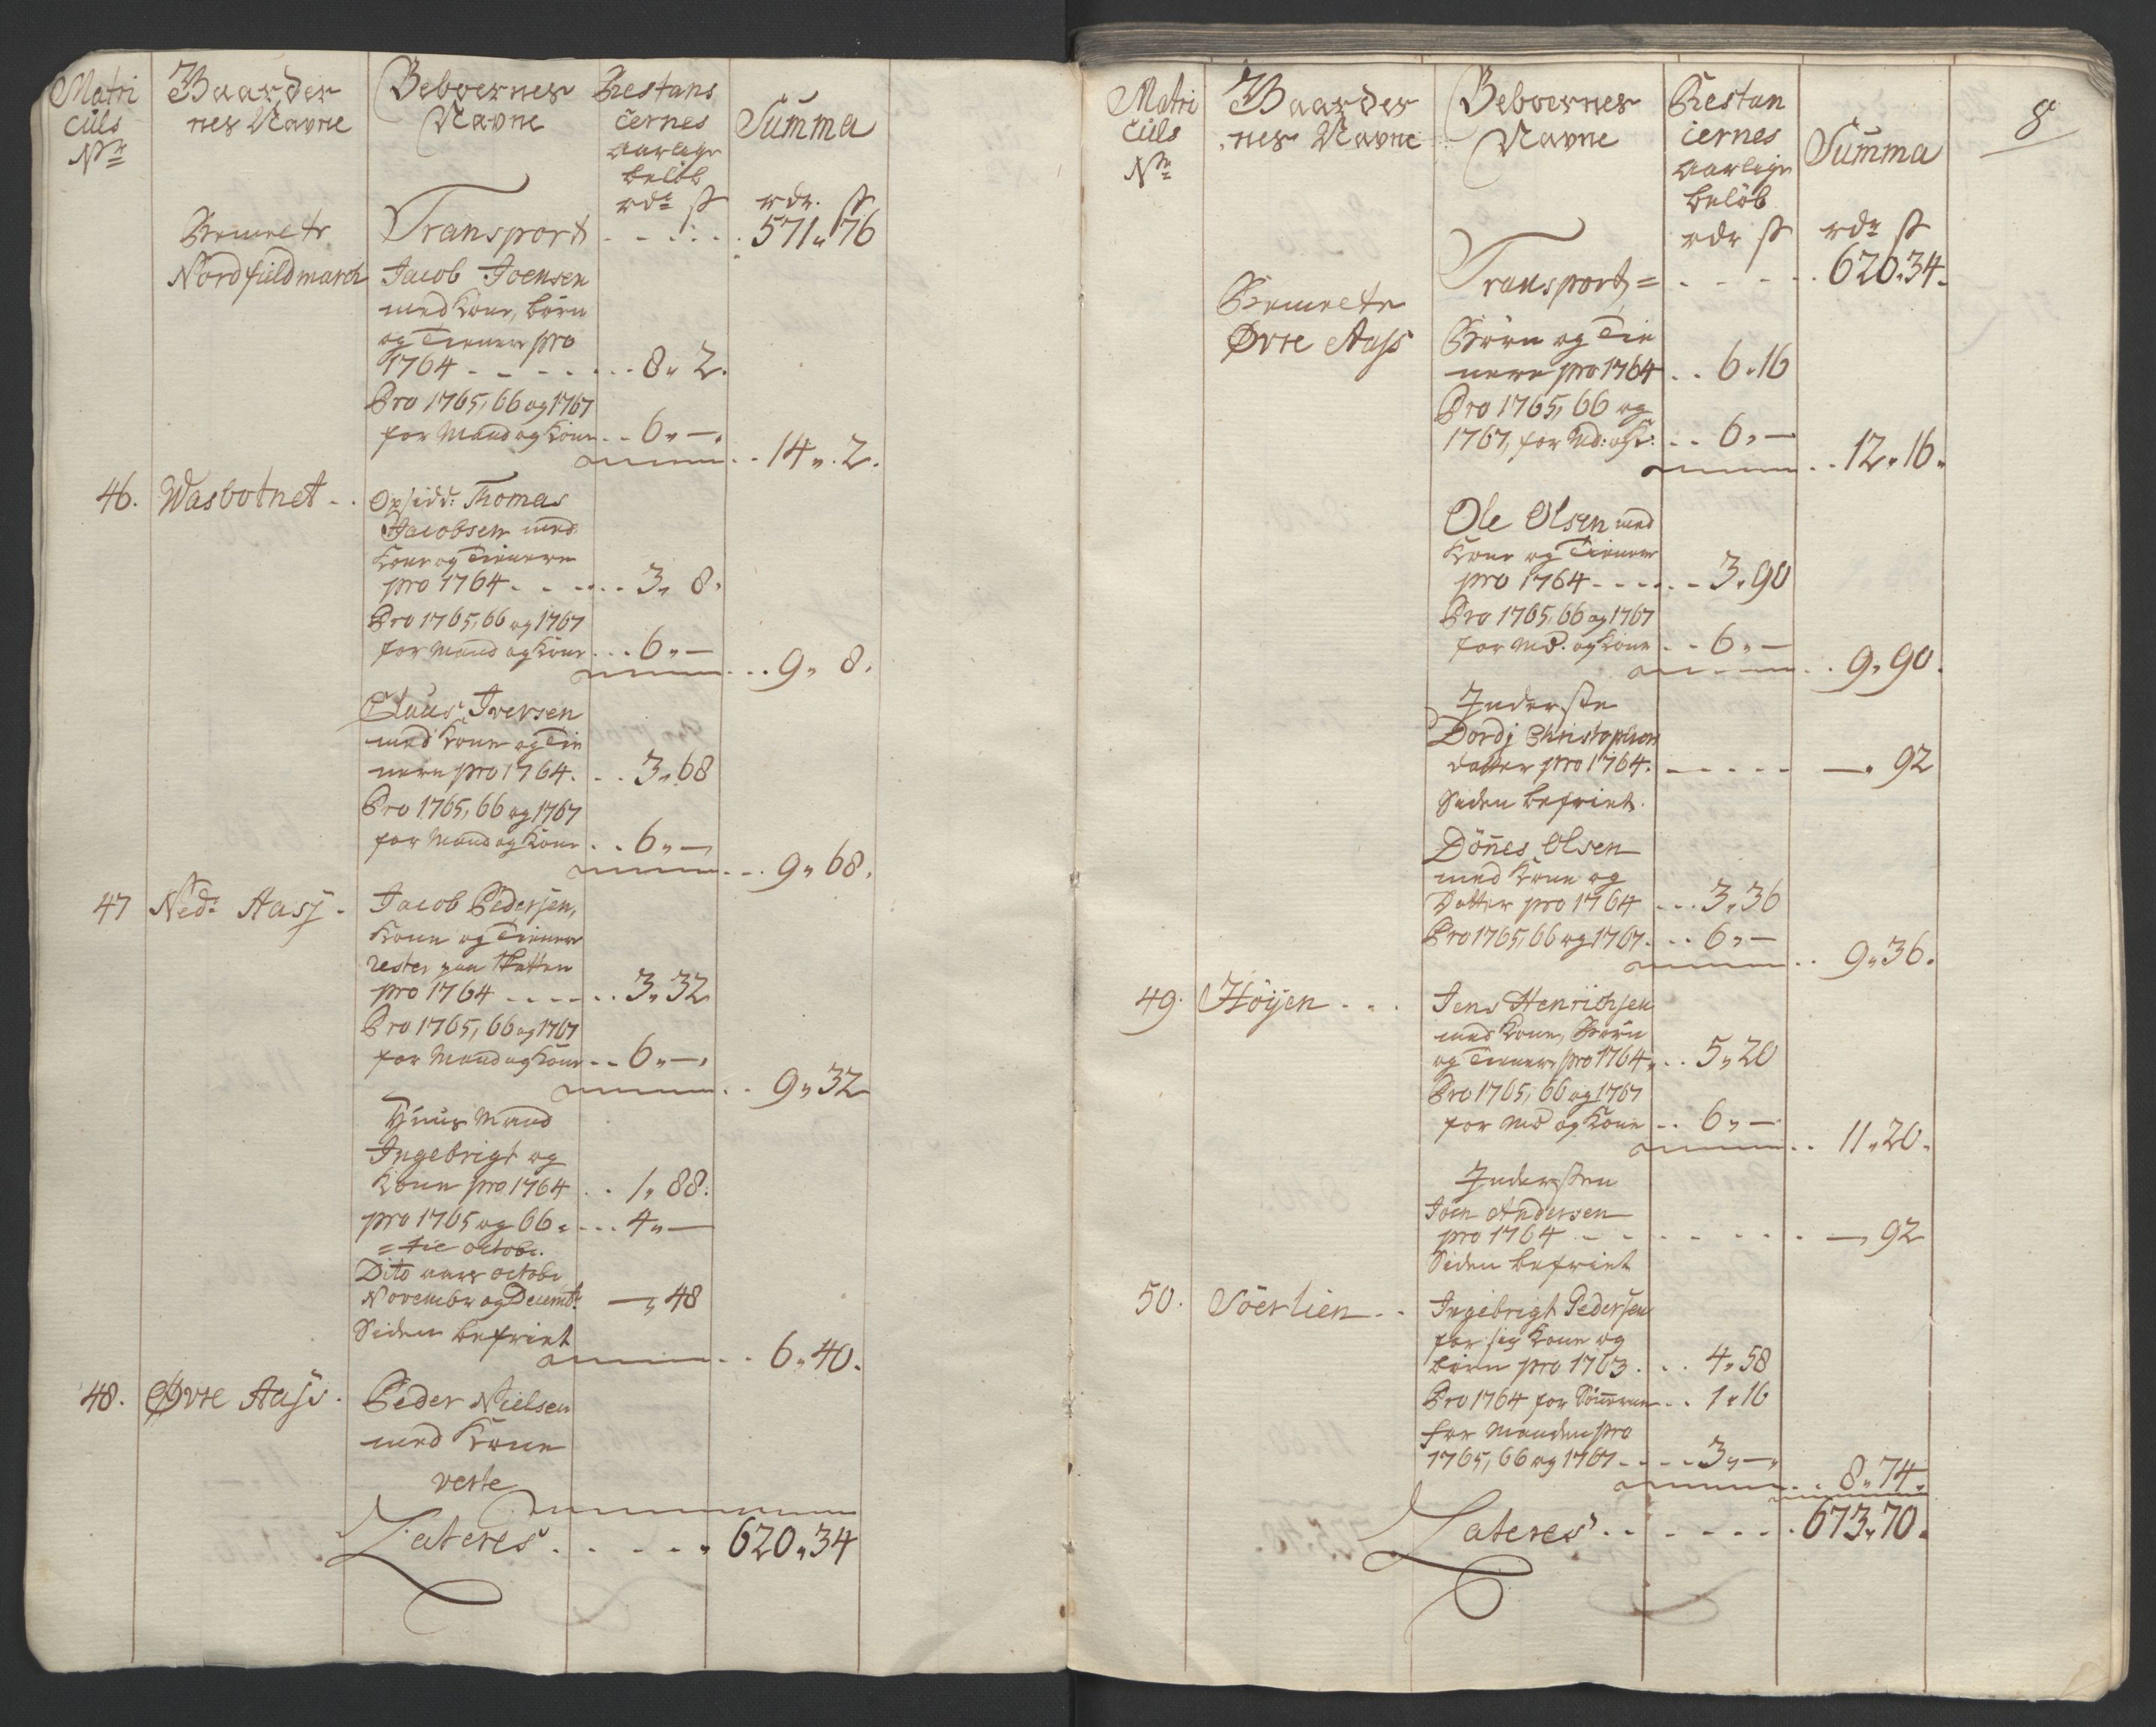 Matri
culs
Nr
Gaarder
nes Navne
Beboernes
Navne
Restans
cernes
aarlige
beløb
rdr ß
Summa
rdr. ß
Transport - - - - - 571 " 76
Benevnte
Nordfieldmarch
Jacob Joensen
med Kone, børn
og Tienere pro
1764 - - - - - - 8 " 2.
Pro 1765, 66 og 1767
for Mand og Kone - - 6 " —
14 " 2.
46. Wasbotnet - -
Opsidd: Thomas
Jacobsen med
Kone og Tienere
pro 1764 - - - - - 3 " 8.
Pro 1765, 66 og 1767
for Mand og Kone - - - 6 " —
9 " 8.
Claus Iversen
med Kone og Tie
nere pro 1764. - - 3 " 68
Pro 1765, 66 og 1767
for Mand og Kone - - 6 " —
9 " 68.
47 Nedr Aasj -
Jacob Pedersen,
Kone og Tienere
rester paa Skatten
pro 1764 - - - - - - 3 " 32
Pro 1765, 66 og 1767
for Mand og Kone - - 6 " —
9 " 32
Huus Mand
Ingebrigt og
Kone pro 1764 - - 1 " 88.
pro 1765 og 66 = - - - 4 " —
= tic octobr.
Dito aars octobr
Novembr og Decembr — " 48
Siden befriet
6 " 40.
48. Øvre Aass -
Peder Nielsen
med Kone
verte
Lateres - - - - - 620 " 34
8
Matri
culs
Nr
Gaarder
nes Navne
Beboernes
Navne
Restan
cernes
aarlige
beløb
rdr ß
Summa
rdr ß
Transport = - - - - 620 " 34.
Benevnte
Øvre Aass
Børn og Tie
nere pro 1764 - - 6 " 16
Pro 1765, 66 og
1767, for Md: og K: - - 6 " —
12 " 16.
Ole Olsen med
Kone og Tienere
pro 1764 - - - - - - 3 " 90
Pro 1765, 66 og 1767
for Md. og Kone - - 6 " —
9 " 90.
Inderste
Dordj Christophers
datter pro 1764. - - - - - — " 92
Siden befriet.
Dönnes Olsen
med Kone og
Datter pro 1764 - - - 3 " 36
Pro 1765, 66 og 1767. - - 6 " —
9 " 36.
49. Höyen - - -
Jens Henrichsen
med Kone, Børn
og Tienere pro 1764 " - - 5 " 20
Pro 1765, 66 og 1767
for Md og Kone - - 6 " —
11 " 20.
Indersten
Joen Andersen
pro 1764 - - - - - - - - — " 92
Siden befriet
50. Söerlien - -
Ingebrigt Pedersen
for sig Kone og
børn pro 1763 - - - 4 " 58
Pro 1764 for Sönnerne - - 1 " 16
for Manden pro
1765, 66 og 1767 - - - - 3 " —
8 " 74.
Lateres - - - - - - 673 " 70.